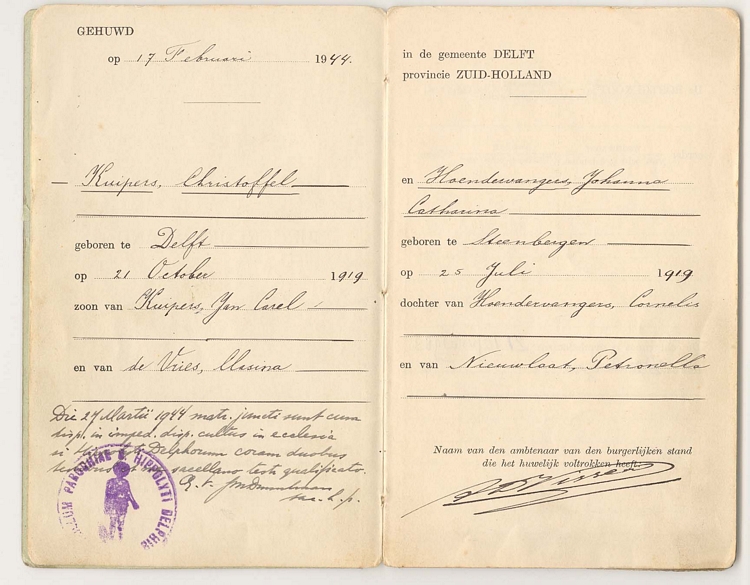 GEHUWD
op 17 Februari 1944.
Kuipers, Christoffel
geboren te Delft
op 21 October 1919
zoon van Kuipers, Jan Carel
en van de Vries, Clasina
Die 27 Martii 1944 matr. juncti sunt cum
disp. in imped. disp. cultus in ecclesia
Delphorum coram duobus
sacellano teste qualificato.
PAROCHIAE S. HIPPOLYTI DELPHIS
in de gemeente DELFT
provincie ZUID-HOLLAND
en Hoendervangers, Johanna
Catharina
geboren te Steenbergen
op 25 Juli 1919
dochter van Hoendervangers, Cornelis
en van Nieuwlaat, Petronella
Naam van den ambtenaar van den burgerlijken stand
die het huwelijk voltrokken heeft: